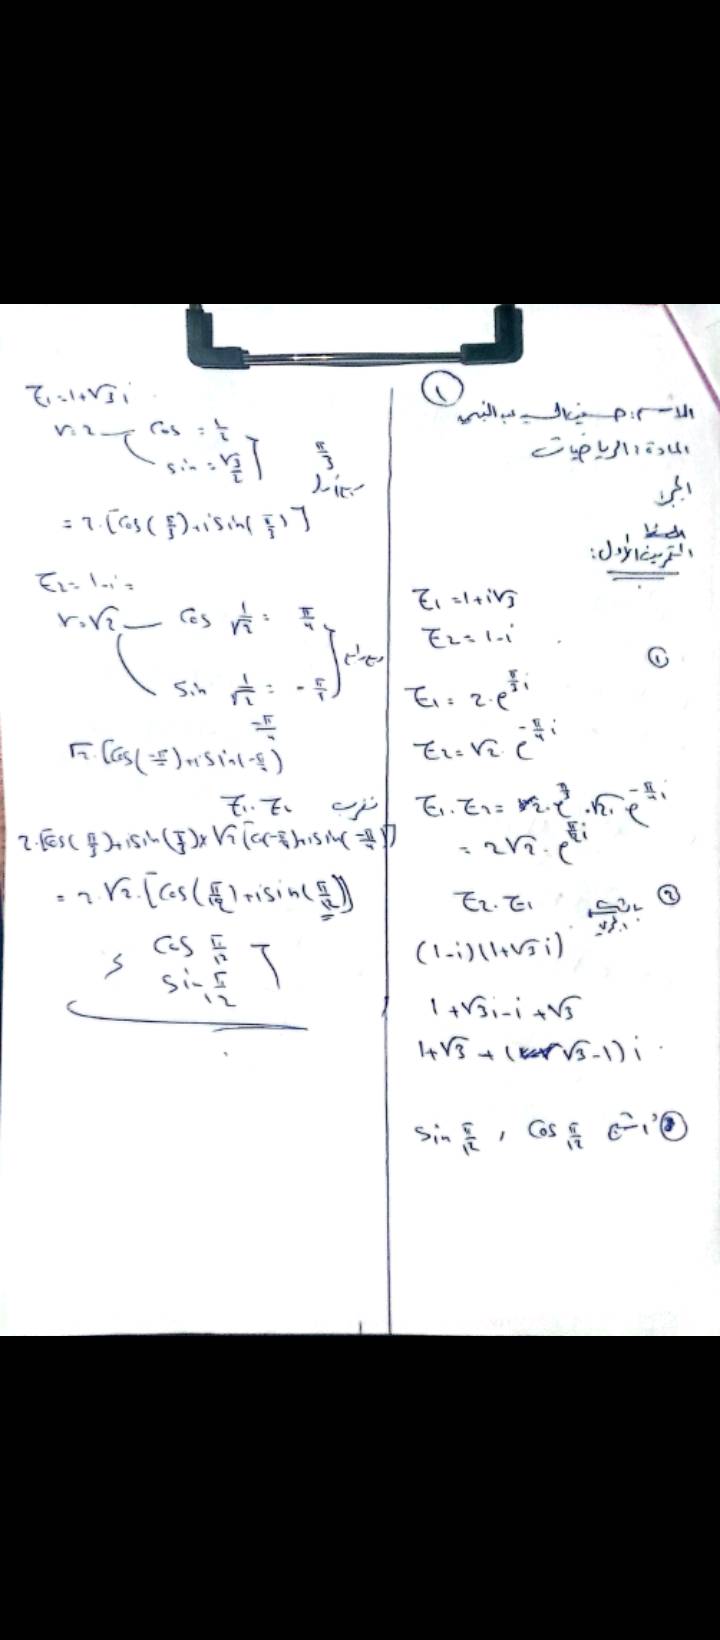 ①
المادة: الرياضيات
التمرين الأول:
Z₁ = 1+i√3
Z₂ = 1-i
①
Z₁ = 2·e^{π/3 i}
Z₂ = √2·e^{-π/4 i}
Z₁·Z₂ = 2·e^{π/3}·√2·e^{-π/4 i}
= 2√2·e^{π/12 i}
②
Z₂·Z₁
(1-i)(1+√3 i)
1+√3i-i+√3
1+√3+(√3-1)i
sin π/12 , cos π/12
Z₁=1+√3 i
r=2 cos = 1/2
sin = √3/2
π/3
= 2·[cos(π/3)+i sin(π/3)]
Z₂=1-i=
r=√2 cos 1/√2 = π/4
sin 1/√2 = -π/4
-π/4
√2·[cos(-π/4)+i sin(-π/4)
Z₁·Z₂
2·[cos(π/3)+i sin(π/3)×√2[cos(-π/4)+i sin(-π/4)]
= 2·√2·[cos(π/12)+i sin(π/12)]
cos π/12
sin π/12